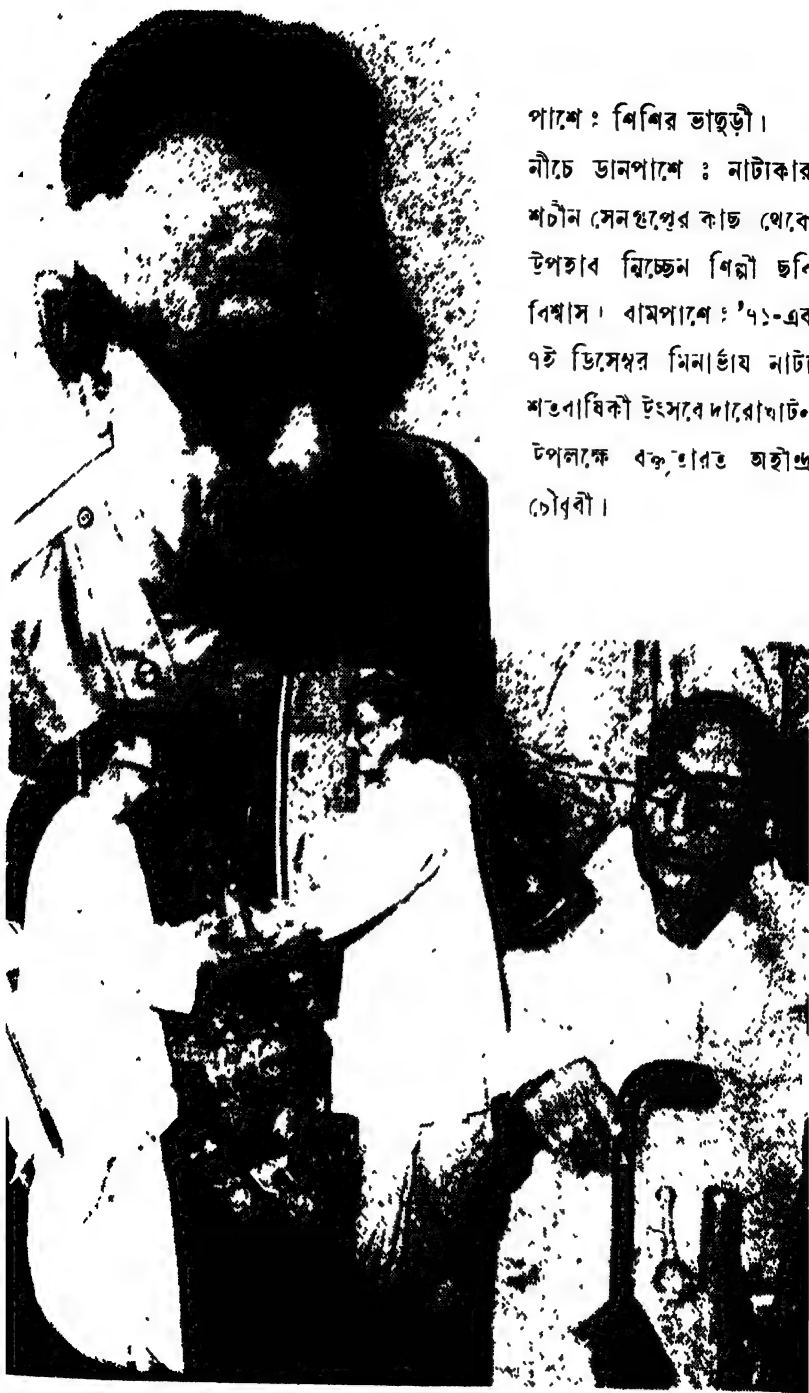 পাশে : শিশির ভাদুড়ী।
নীচে ডানপাশে : নাট্যকার
শচীন সেনগুপ্তের কাছ থেকে
উপহাব নিচ্ছেন শিল্পী ছবি
বিশ্বাস। বামপাশে : '৭১-এব
৭ই ডিসেম্বর মিনার্ভায নাট্য
শতবার্ষিকী উৎসবে দ্বারোদ্ঘাটন
উপলক্ষে বক্তৃতারত অহীন্দ্র
চৌধুবী।